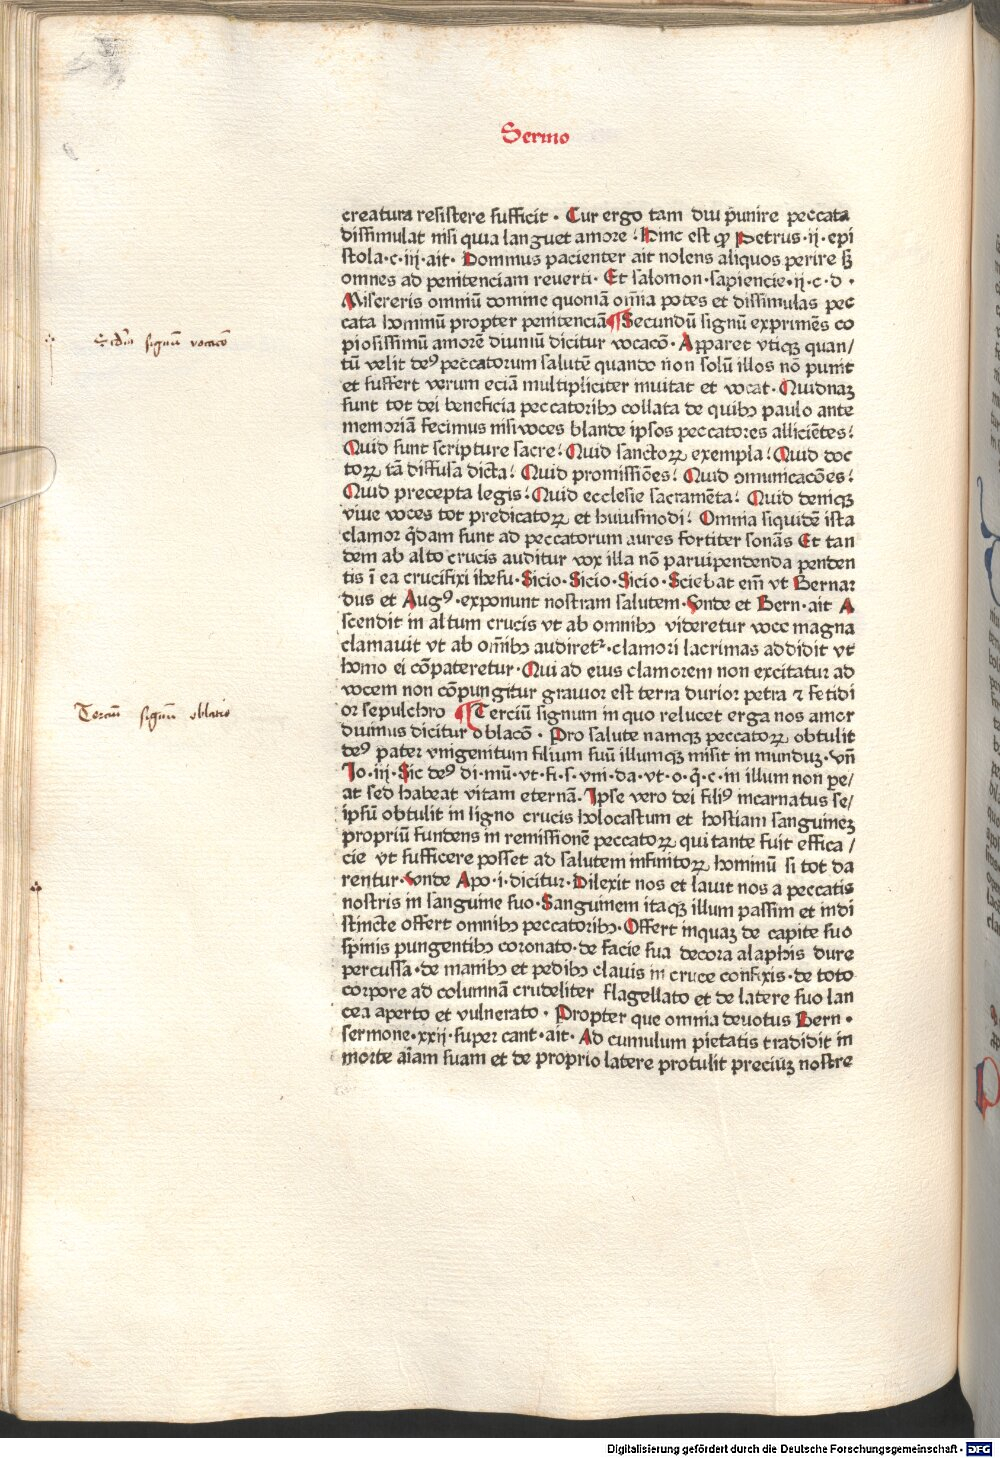 Sermo
creatura resistere sufficit · Cur ergo tam diu p̄unire peccata
dissimulat nisi quia languet amore? Hinc est ꝙ Petrus·ij·epi
stola·c·iij·ait· Dominus pacienter ait nolens aliquos perire sꝫ
omnes ad penitenciam reuerti· Et salomon·sapiencie·ij·c·d·
Misereris omniū domine quoniā om̄ia potes et dissimulas pec
cata hominū propter penitenciā ¶Secundū signū exprimēs co
piosissimū amorē diuinū dicitur vocacō· Apparet vtiqꝫ quan/
tū velit deꝰ peccatorum salutē quando non solū illos nō punit
et suffert verum eciā multipliciter inuitat et vocat· Quidnaꝫ
sunt tot dei beneficia peccatoribꝫ collata de quibꝫ paulo ante
memoriā fecimus nisi voces blande ipsos peccatores alliciētes?
Quid sunt scripture sacre? Quid sanctoꝝ exempla? Quid doc
toꝝ tā diffusa dicta? Quid promissiōes? Quid ꝯmunicacōes?
Quid precepta legis? Quid ecclesie sacramēta? Quid deniqꝫ
viue voces tot predicatoꝝ et huiusmodi? Omnia siquidē ista
clamor q̄dam sunt ad peccatorum aures fortiter sonās Et tan
dem ab alto crucis auditur vox illa nō paruipendenda penden
tis ī ea crucifixi ihesu· Sicio· Sicio· Sicio· Sciebat em̄ vt Bernar
dus et Augꝰ·exponunt nostram salutem· Vnde et Bern·ait A
scendit in altum crucis vt ab omnibꝫ videretur voce magna
clamauit vt ab om̄ibꝫ audiret᷑·clamori lacrimas addidit vt
homo ei cōpateretur· Qui ad eius clamorem non excitatur ad
vocem non cōpungitur grauior est terra durior petra ⁊ fetidi
or sepulchro ¶Terciū signum in quo relucet erga nos amor
diuinus dicitur oblacō · Pro salute namqꝫ peccatoꝝ obtulit
deꝰ pater vnigenitum filium suū illumqꝫ misit in munduꝫ·vn̄
Io·iij· Sic deꝰ di·mū·vt·fi·s·vni·da·vt·o·q̄·c·in illum non ꝑe/
at sed habeat vitam eternā· Ipse vero dei filiꝰ incarnatus se/
ipsū obtulit in ligno crucis holocastum et hostiam sanguineꝫ
propriū fundens in remissionē peccatoꝝ qui tante fuit effica/
cie vt sufficere posset ad salutem infinitoꝝ hominū si tot da
rentur· Vnde Apo·i·dicitur· Dilexit nos et lauit nos a peccatis
nostris in sanguine suo· Sanguinem itaqꝫ illum passim et indi
stincte offert omnibꝫ peccatoribꝫ· Offert inquaꝫ de capite suo
spinis pungentibꝫ coronato·de facie sua decora alaphis dure
percussa·de manibꝫ et pedibꝫ clauis in cruce confixis·de toto
corpore ad columnā crudeliter flagellato et de latere suo lan
cea aperto et vulnerato· Propter que omnia deuotus Bern·
sermone·xxij·super cant·ait· Ad cumulum pietatis tradidit in
morte aīam suam et de proprio latere protulit preciuꝫ nostre
Scd̄m signū vocacō
Terciū signū oblatio
Digitalisierung gefördert durch die Deutsche Forschungsgemeinschaft - DFG